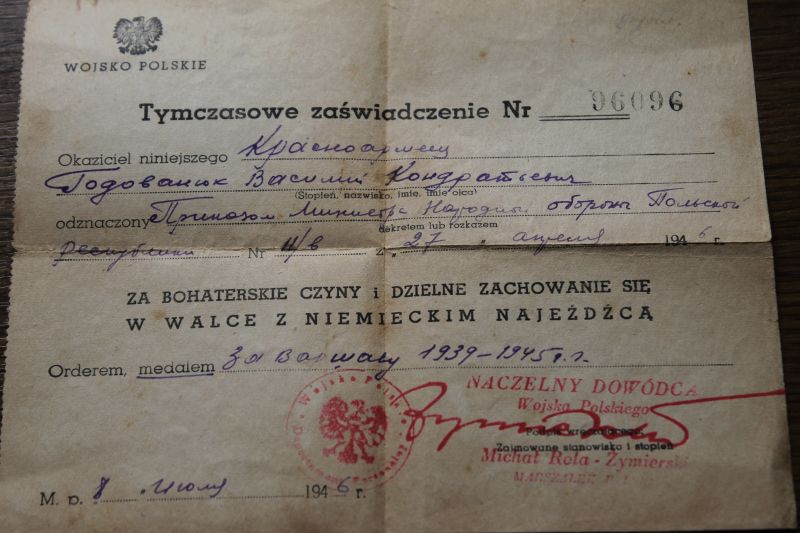 WOJSKO POLSKIE
Tymczasowe zaświadczenie Nr 96096
Okaziciel niniejszego Красноармеец
Годованюк Василий Кондратьевич
(Stopień, nazwisko, imię, imię ojca)
odznaczony Приказом Министра Народной обороны Польской
dekretem lub rozkazem
Республики Nr 11/в z „27„ апреля 1946 r.
ZA BOHATERSKIE CZYNY i DZIELNE ZACHOWANIE SIĘ
W WALCE Z NIEMIECKIM NAJEŹDŹCĄ
Orderem, medalem За Варшаву 1939-1945 г.г.
Wojsko Polskie
NACZELNY DOWÓDCA
Wojska Polskiego
Podpis wręczającego
Zajmowane stanowisko i stopień
Michał Rola-Żymierski
MARSZAŁEK
M. p. 8 Июля 1946 r.